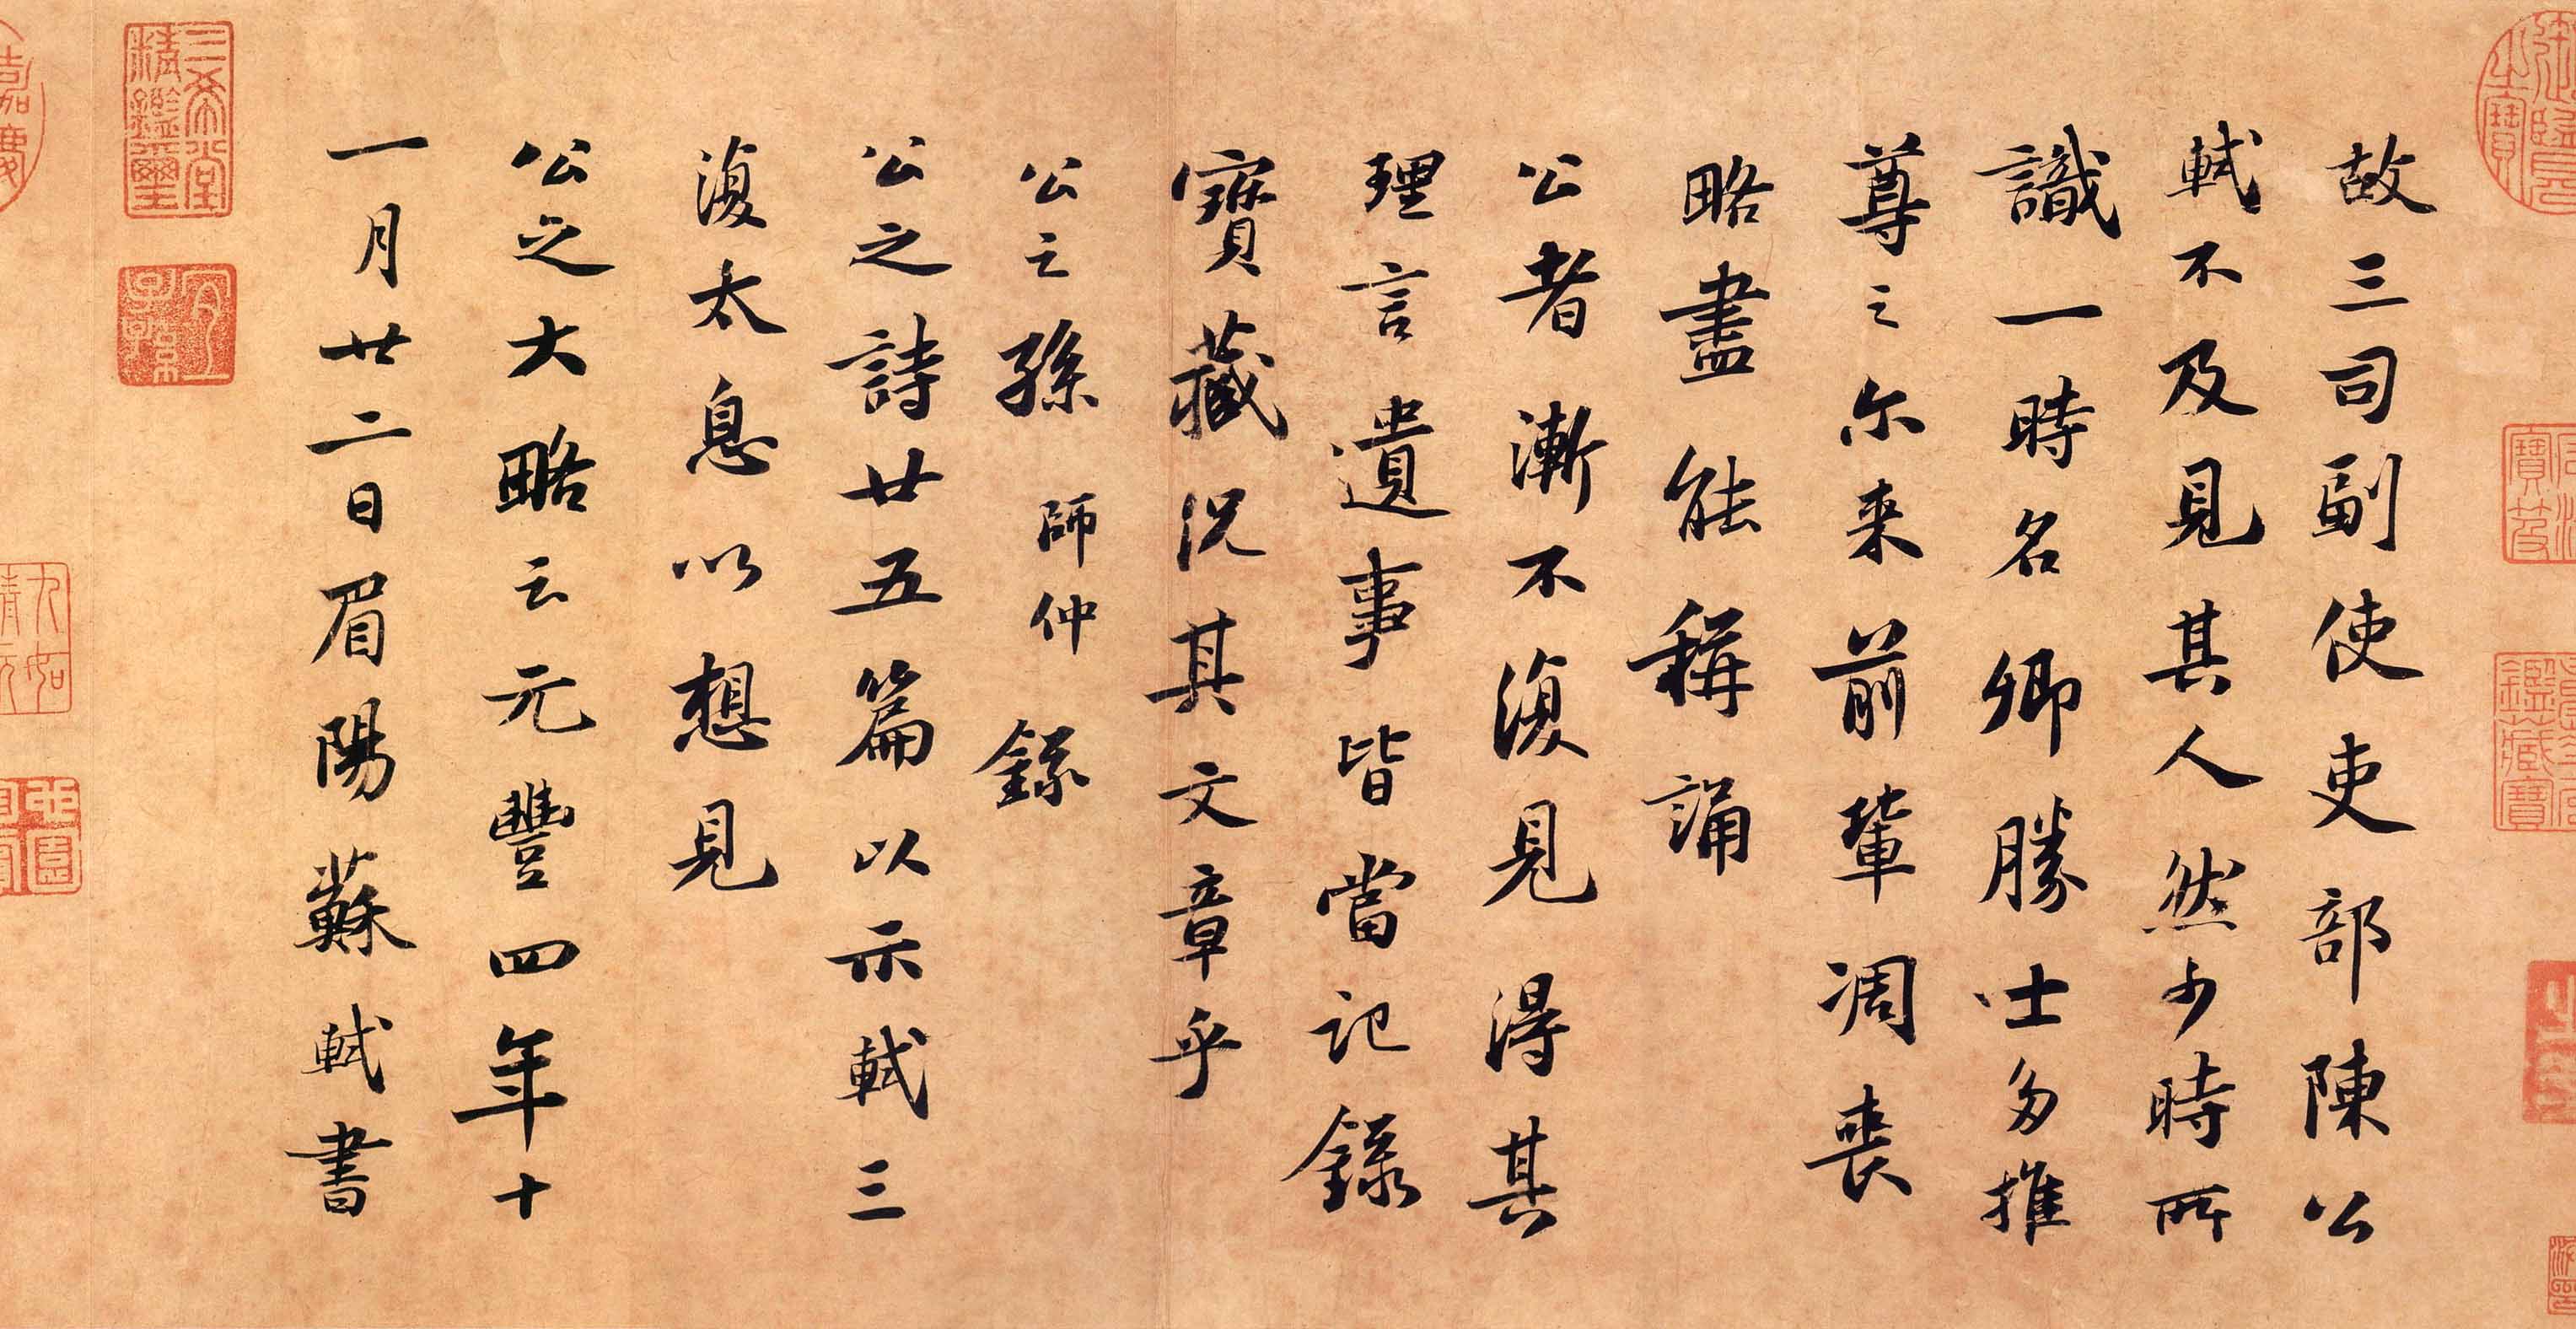 故三司副使吏部陳公
軾不及見其人然少時所
識一時名卿勝士多推
尊之尔来前輩凋喪
略盡能稱誦
公者漸不復見得其
理言遺事皆當記錄
寶藏况其文章乎
公之孫師仲錄
公之詩廿五篇以示軾三
復太息以想見
公之大略云元豐四年十
一月廿二日眉陽蘇軾書
三希堂
精鑑璽
宜
子孫
嘉慶